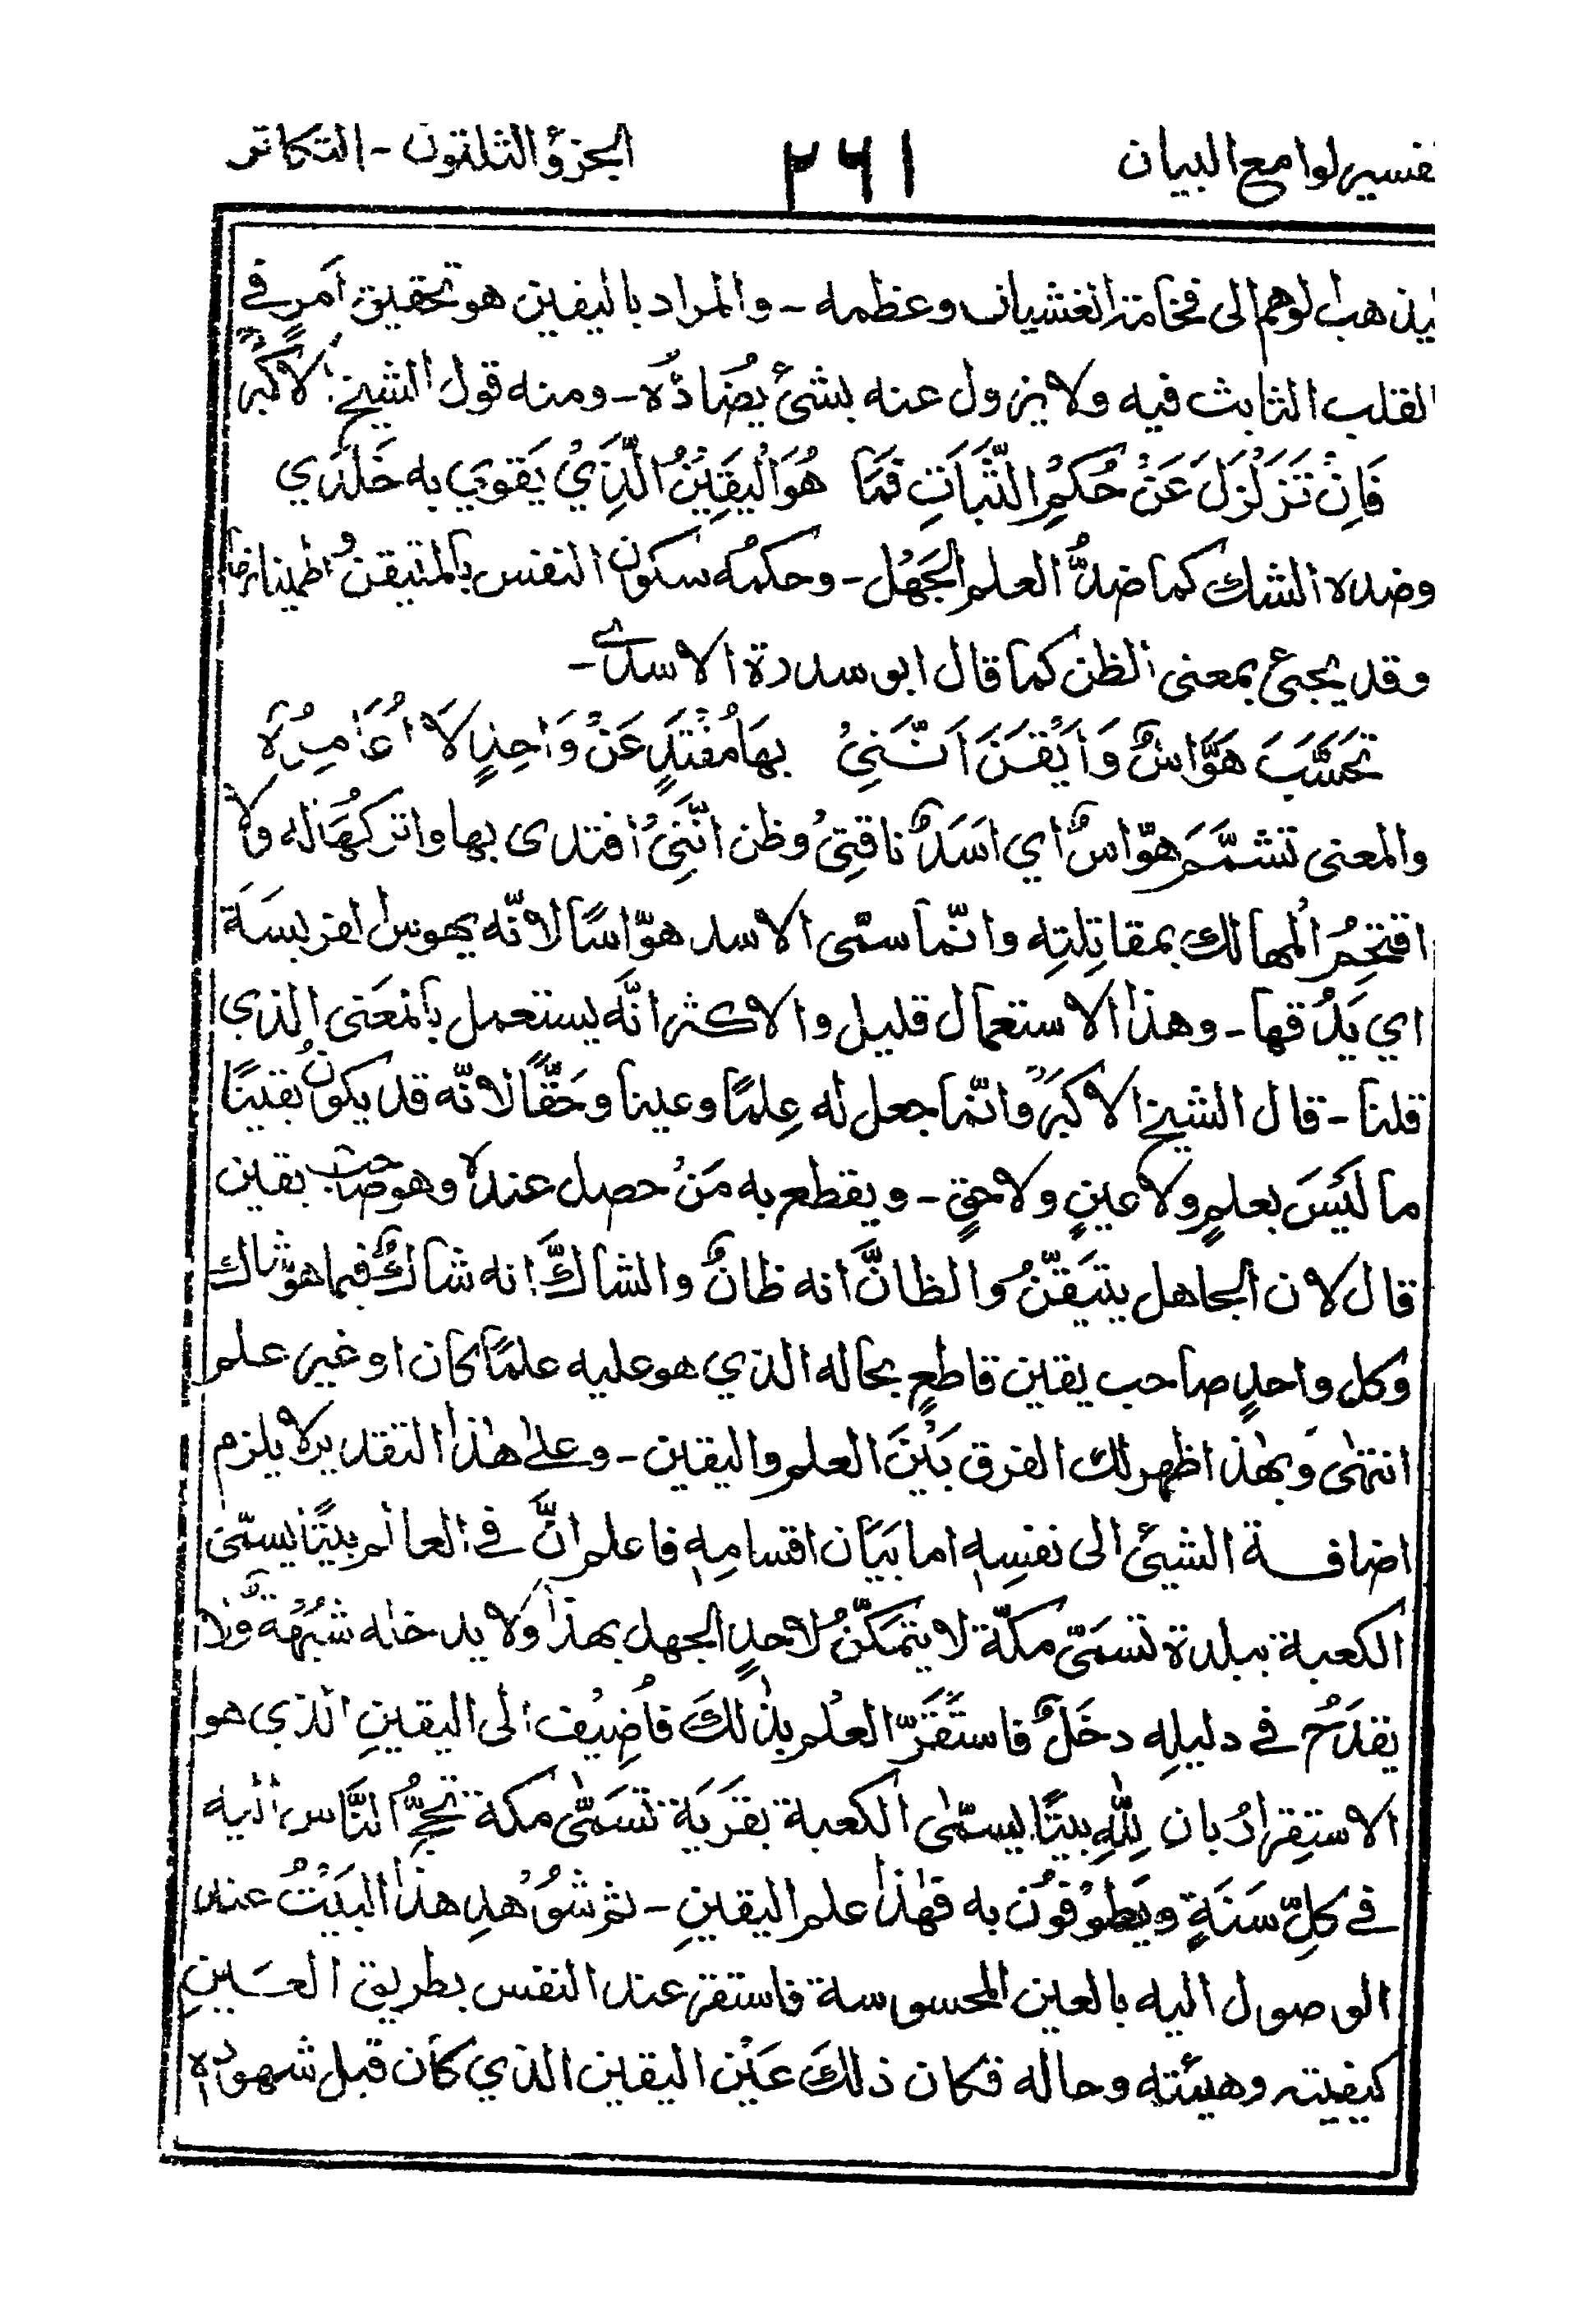 تفسير لوامع البيان ٢٦١ الجزؤ الثلثون - التكاثر
ليذهب الوهم الى فخامة الغشيان وعظمه - والمراد باليقين هو تحقيق امرٍ في
القلب الثابث فيه ولا يزول عنه بشئ يُضادُّه - ومنه قول الشيخ الاكبرؒ
فَاِنْ تَزَلْزَلَ عَنْ حُكْمِ الثَّبَاتِ فَمَا هُوَ الْيَقِيْنُ الَّذِيْ يَقوي به خَلَدي
وضده الشك كما ضدُّ العلم الجَهْل - وحكمه سكون النفس بالمتيقن واطمينانها
وقد يجئ بمعنى الظن كما قال ابو سدرة الاسدي -
تَحَسَّبَ هَوَّاسٌ وَاَيْقَنَ اَنَّنِيْ بِهَا مُفْتَدٍ عَنْ وَاحِدٍ لَا اُغَامِرُهْ
والمعنى تشمَّمَ هوّاسٌ اي اسَدٌ ناقتِيْ وظن انَّنِيْ افتدى بها واتركُهَا له ولا
اقتحِمُ المهالك بمقاتِلتِه وانّما سمّى الاسد هوّاسًا لانّه يهوس الفريسَة
اي يَدُقها - وهذا الاستعمال قليل والاكثر انَّه يستعمل بالمعَنى الذي
قلنا - قال الشيخ الاكبرؒ وانّما جعل له عِلمًا وعينا وحَقًّا لانّه قد يكون يقينًا
ما لَيْسَ بعلمٍ ولا عينٍ ولا حقٍ - ويقطع به مَنْ حصل عنده وهو صاحب يقين
قال لان الجاهل يتيَقّنُ والظانَّ انه ظانٌّ والشاكَّ انه شاكٌّ فيما هو شاك
وكل واحدٍ صاحب يقين قاطعٍ بحاله الذي هو عليه علمًا كان او غير علم
انتهى وبهذا ظهر لك الفرق بَيْنَ العلم واليقين - وعلى هذا التقدير لا يلزم
اضافة الشيئ الى نفسِه اما بَيَان اقسامِه فاعلم انَّ في العالم بيتًا يسمّى
الكعبة ببلدة تسَمّى مكّة لا يتمَكّنُ لاحدٍ الجهل بهذا وَلا يدخله شبْهَة وَّلا
يقدَحُ في دليلِه دخَلٌ فاستَقَرّ العلم بذٰلكَ فاُضِيْف الى اليقينِ الذي هو
الاستِقرارُ بان لِلّٰهِ بيتًا يسمّى الكعبة بقَريَة تسَمّى مكة تحجُّ النَّاس اليه
في كلِّ سَنَةٍ ويَطوْفوْن به فهٰذا علم اليقينِ - ثم شوْهِد هذا البَيْتُ عند
الوصول اليه بالعين المحسوسة فاستقر عند النفس بطريق العَينِ
كيفيته وهيئته وحاله فكان ذلكَ عَيْن اليقين الذي كان قبل شهوده